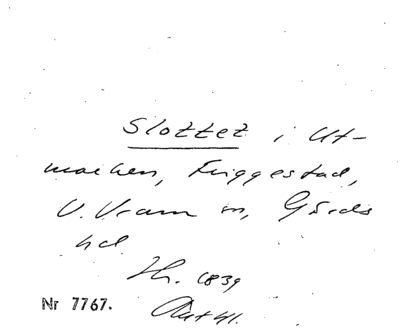 Slottet i Ut-
marken, Friggestad,
V. Vram sn, Gärds
hd
Hr. 1839
Nr 7767.